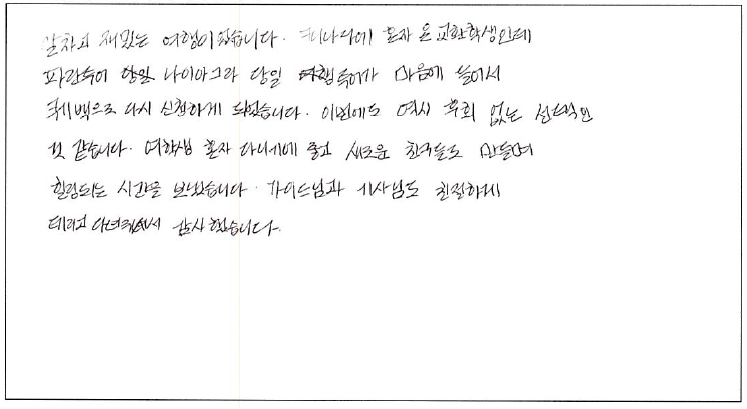 알차고 재밌는 여행이었습니다. 캐나다에 혼자 온 교환학생인데
파란투어 당일 나이아그라 당일 여행 투어가 마음에 들어서
퀘백으로 다시 신청하게 되었습니다. 이번에도 역시 후회 없는 선택인
것 같습니다. 여학생 혼자 다니기에 좋고 새로운 친구들도 만들며
힐링되는 시간을 보냈습니다. 가이드님과 기사님도 친절하게
데리고 다녀주셔서 감사했습니다.